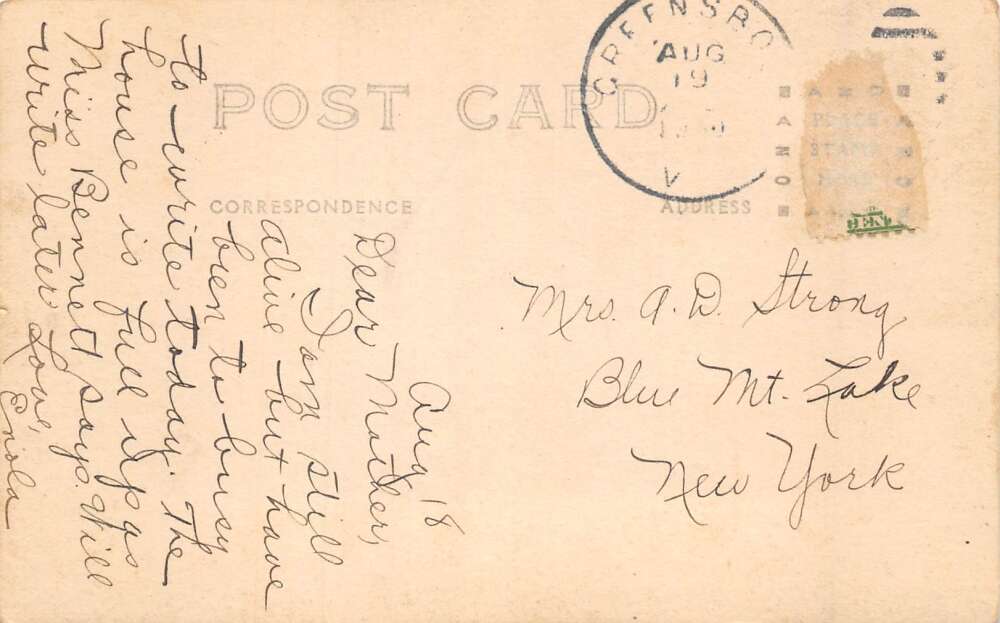 POST CARD
CORRESPONDENCE
ADDRESS
GREENSBO
AUG
19
V
AZO
PLACE
STAMP
HERE
Aug 18
Dear Mother,
I am still
alive but have
been to busy
to write today. The
house is full up as
Miss Bennett says. Will
write later Love,
Enola
Mrs. A. D. Strong
Blue Mt. Lake
New York